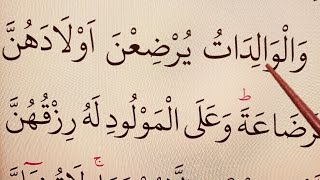 وَالْوَالِدَاتُ يُرْضِعْنَ اَوْلَادَهُنَّ
رَضَاعَةَ ط وَعَلَى الْمَوْلُودِ لَهُ رِزْقُهُنَّ